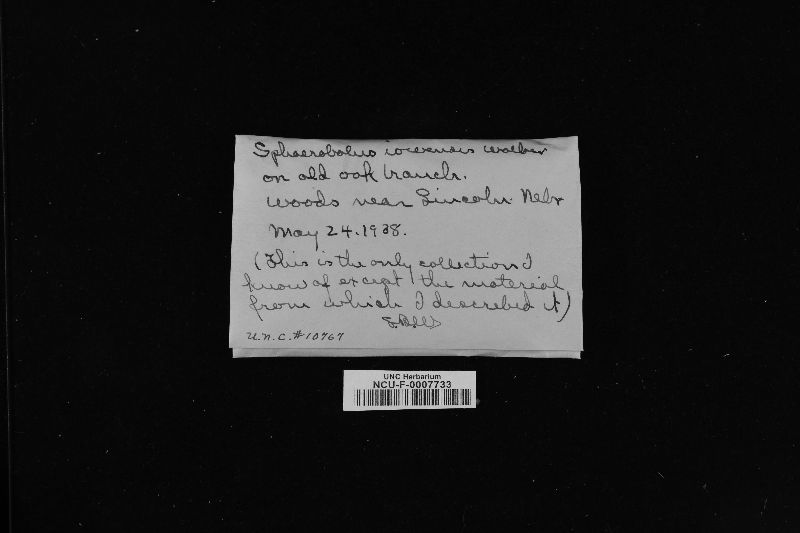 Sphaerobolus iowensis Walker
on old oak branch.
Woods near Lincoln Nebr
May 24. 1938.
(This is the only collection I
know of except the material
from which I described it)
U.N.C. #10767
UNC Herbarium
NCU-F-0007733